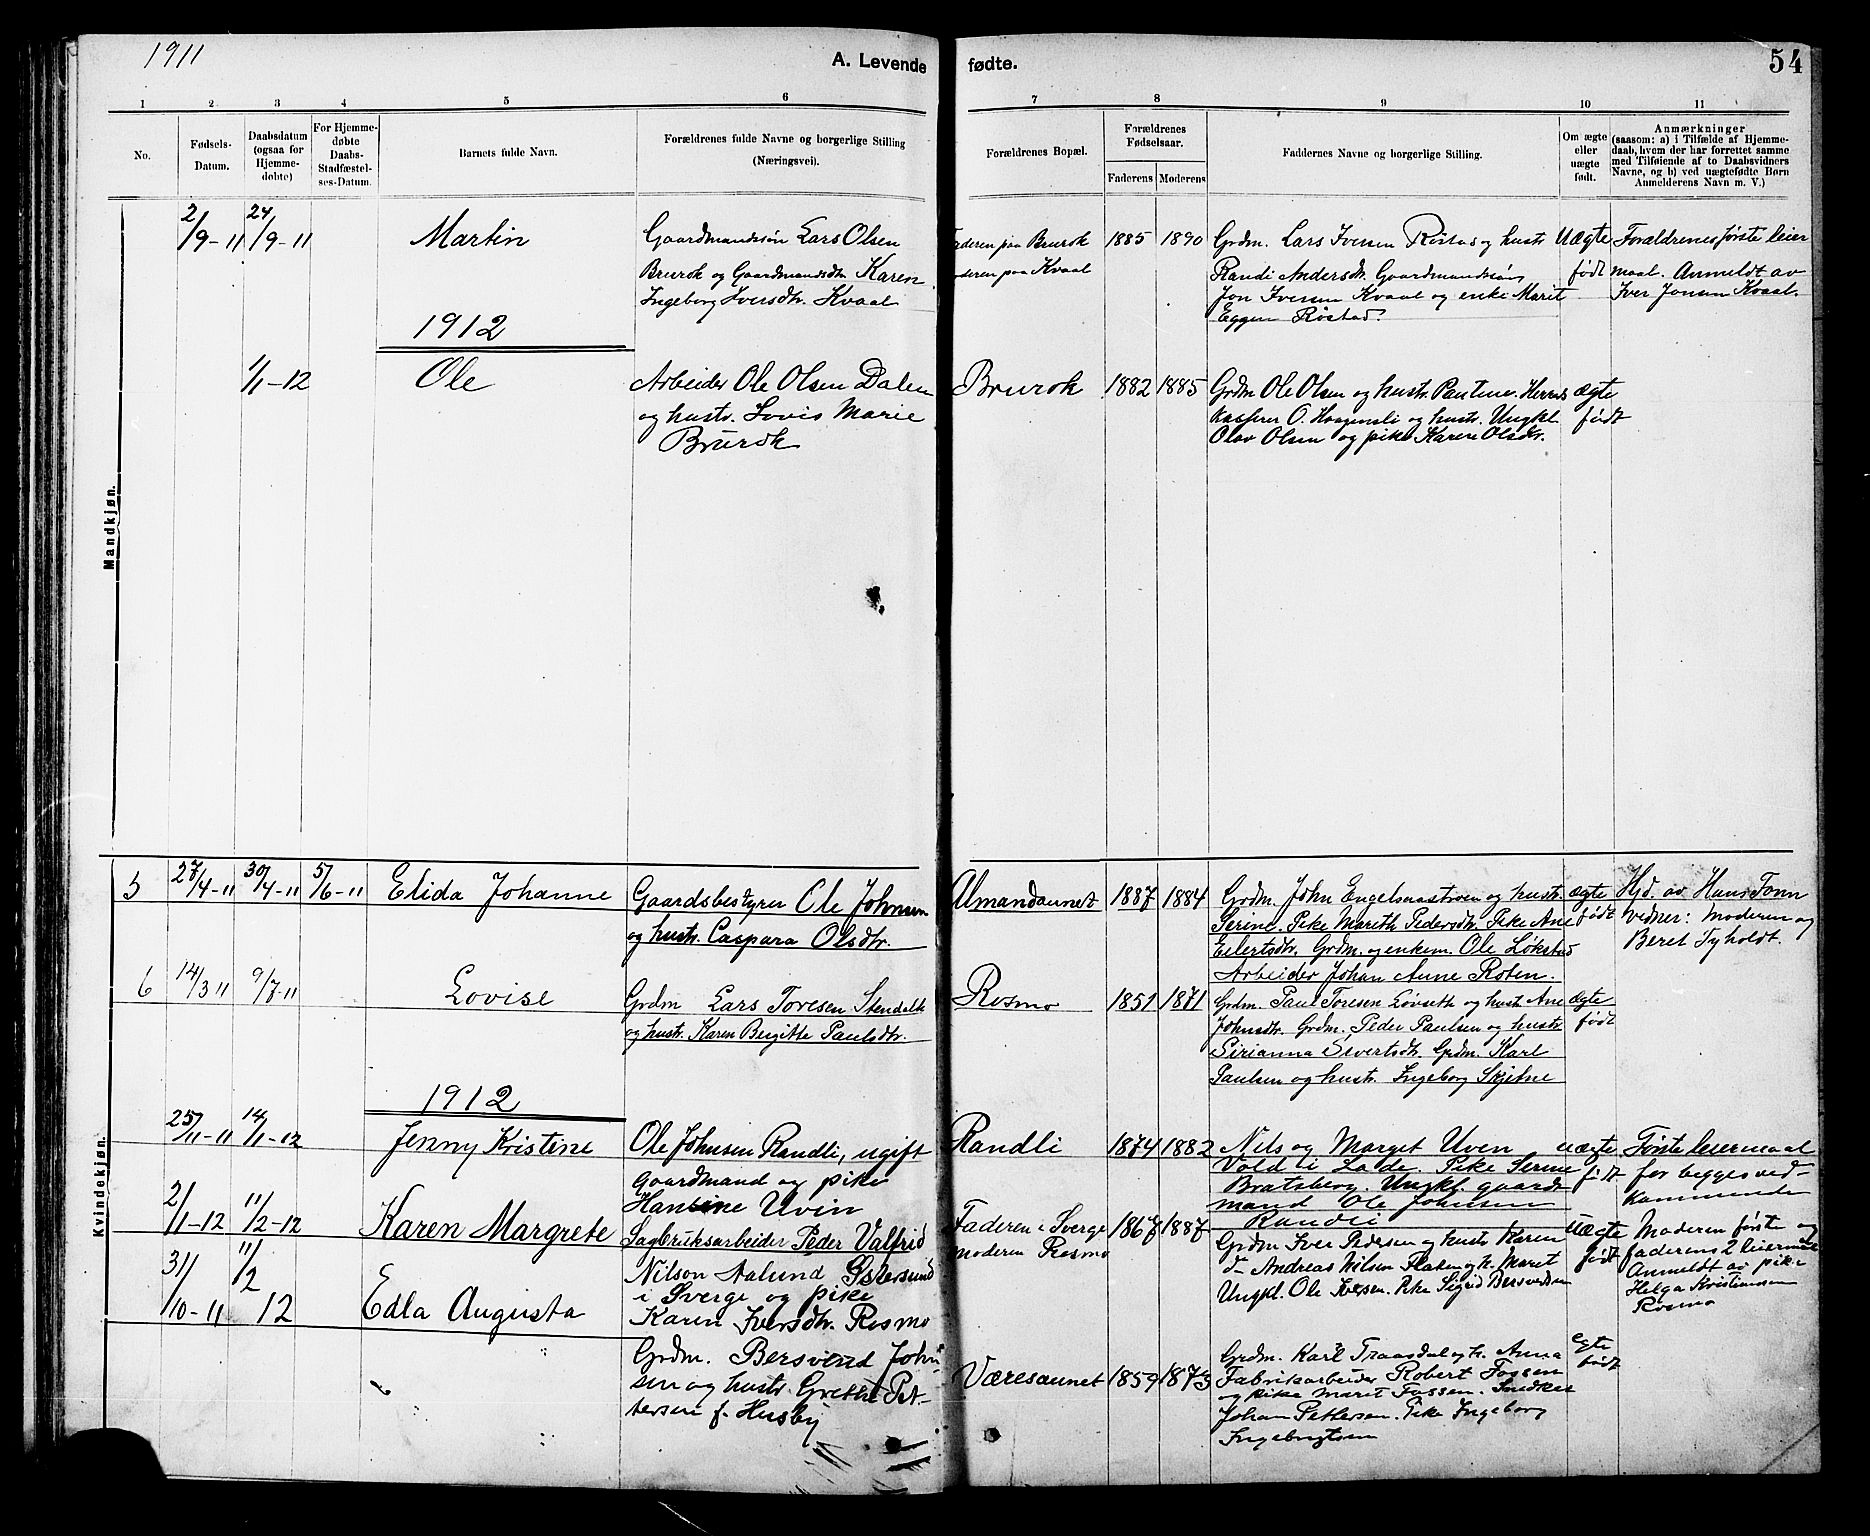 1911
A. Levende fødte.
54
1 2 3 4 5 6 7 8 9 10 11
No.
Fødsels-
Datum.
Daabsdatum
(ogsaa for
Hjemme-
døbte)
For Hjemme-
døbte
Daabs-
Stadfæstel-
ses-Datum.
Barnets fulde Navn.
Forældrenes fulde Navne og borgerlige Stilling
(Næringsvei).
Forældrenes Bopæl.
Forældrenes
Fødselsaar.
Faderens Moderens
Faddernes Navne og borgerlige Stilling.
Om ægte
eller
uægte
født.
Anmærkninger
(saasom: a) i Tilfælde af Hjemme-
daab, hvem der har forrettet samme
med Tilføiende af to Daabsvidners
Navne, og b) ved uægtefødte Børn
Anmelderens Navn m. V.)
Mandkjøn.
2/9-11 24/9-11
Martin
Gaardmandssøn Lars Olsen
Brurok og Gaardmandsdtr. Karen
Ingeborg Iversdtr. Kvaal
Faderen paa Brurok
Moderen paa Kvaal
1885 1890
Grdm. Lars Iversen Røstad og hustr
Randi Andersdtr. Gaardmandssøn
Jon Iversen Kvaal og enke Marit
Eggen Røstad.
Uægte
født
Forældrenes første leier
maal. Anmeldt av
Iver Jonsen Kvaal.
1912
1/1-12
Ole
Arbeider Ole Olsen Dalen
og hustr. Lovis Marie
Brurok
Brurok
1882 1885
Grdm Ole Olsen og hustr. Pauline. Herreds
kasserer O. Haagensli og hustr. Ungkl.
Olav Olsen og pike Karen Olsdtr.
ægte
født
Kvindekjøn.
5 27/4-11 30/4-11 5/6-11
Elida Johanne
Gaardsbestyrer Ole Johnsen
og hustr. Caspara Olsdtr.
Almandaunet
1887 1884
Grdm. John Engelsaastrøen og hustr.
Serine. Pike Marith Pedersdtr. Pike Ane
Eilertsdtr. Grdm. og enkem. Ole Løkstad
Arbeider Johan Anne Roten.
ægte
født
Hjd. av Hans Tonn
vidner: Moderen og
Beret Tyholdt.
6 14/3 11 9/7-11
Lovise
Grdm Lars Toresen Stendalh
og hustr. Karen Bergitte Paulsdtr.
Rosmo
1851 1871
Grdm. Paul Toresen Løvseth og hustr Ane
Johnsdtr. Grdm. Peder Paulsen og hustr
Sirianna Sivertsdtr. Grdm. Karl
Paulsen og hustr. Ingeborg Skjetne
ægte
født
1912
25/11-11 14/1-12
Jenny Kristine
Ole Johnsen Randli, ugift
gaardmand og pike
Hansine Uvin
Randli
1874 1882
Nils og Marget Uven
Vold i Lade. Pike Serine
Bratsberg. Ungkl. gaard-
mand Ole Johnsen
Randli
uægte
født
Første leiermaal
for begges ved-
kommende
2/1-12 11/2-12
Karen Margrete
Sagbruksarbeider Peder Valfrid
Nilson Aalund Østersund
i Sverge og pike
Karen Iversdtr. Rosmo
Faderen i Sverge
moderen Rosmo
1867 1887
Grdm Iver Pedersen og hustr Karen
d- Andreas Nilsen Flaken og h. Maret
Ungkl. Ole Iversen. Pike Sigrid Bersvendsen
Uægte
født
Moderen første og
faderens 2 leiermaal
Anmeldt av pike
Helga Kristiansen
Rosmo
31/10-11 11/2 12
Edla Augusta
Grdm. Bersvend John-
sen og hustr. Grethe Pet-
tersen f. Husby
Væresaunet
1859 1873
Grdm. Karl Traasdal og h. Anna
Fabrikarbeider Robert Fossen
og pike Marit Fossen. Snedker
Johan Pettersen. Pike Ingeborg
Ingebrigtsen
egte
født